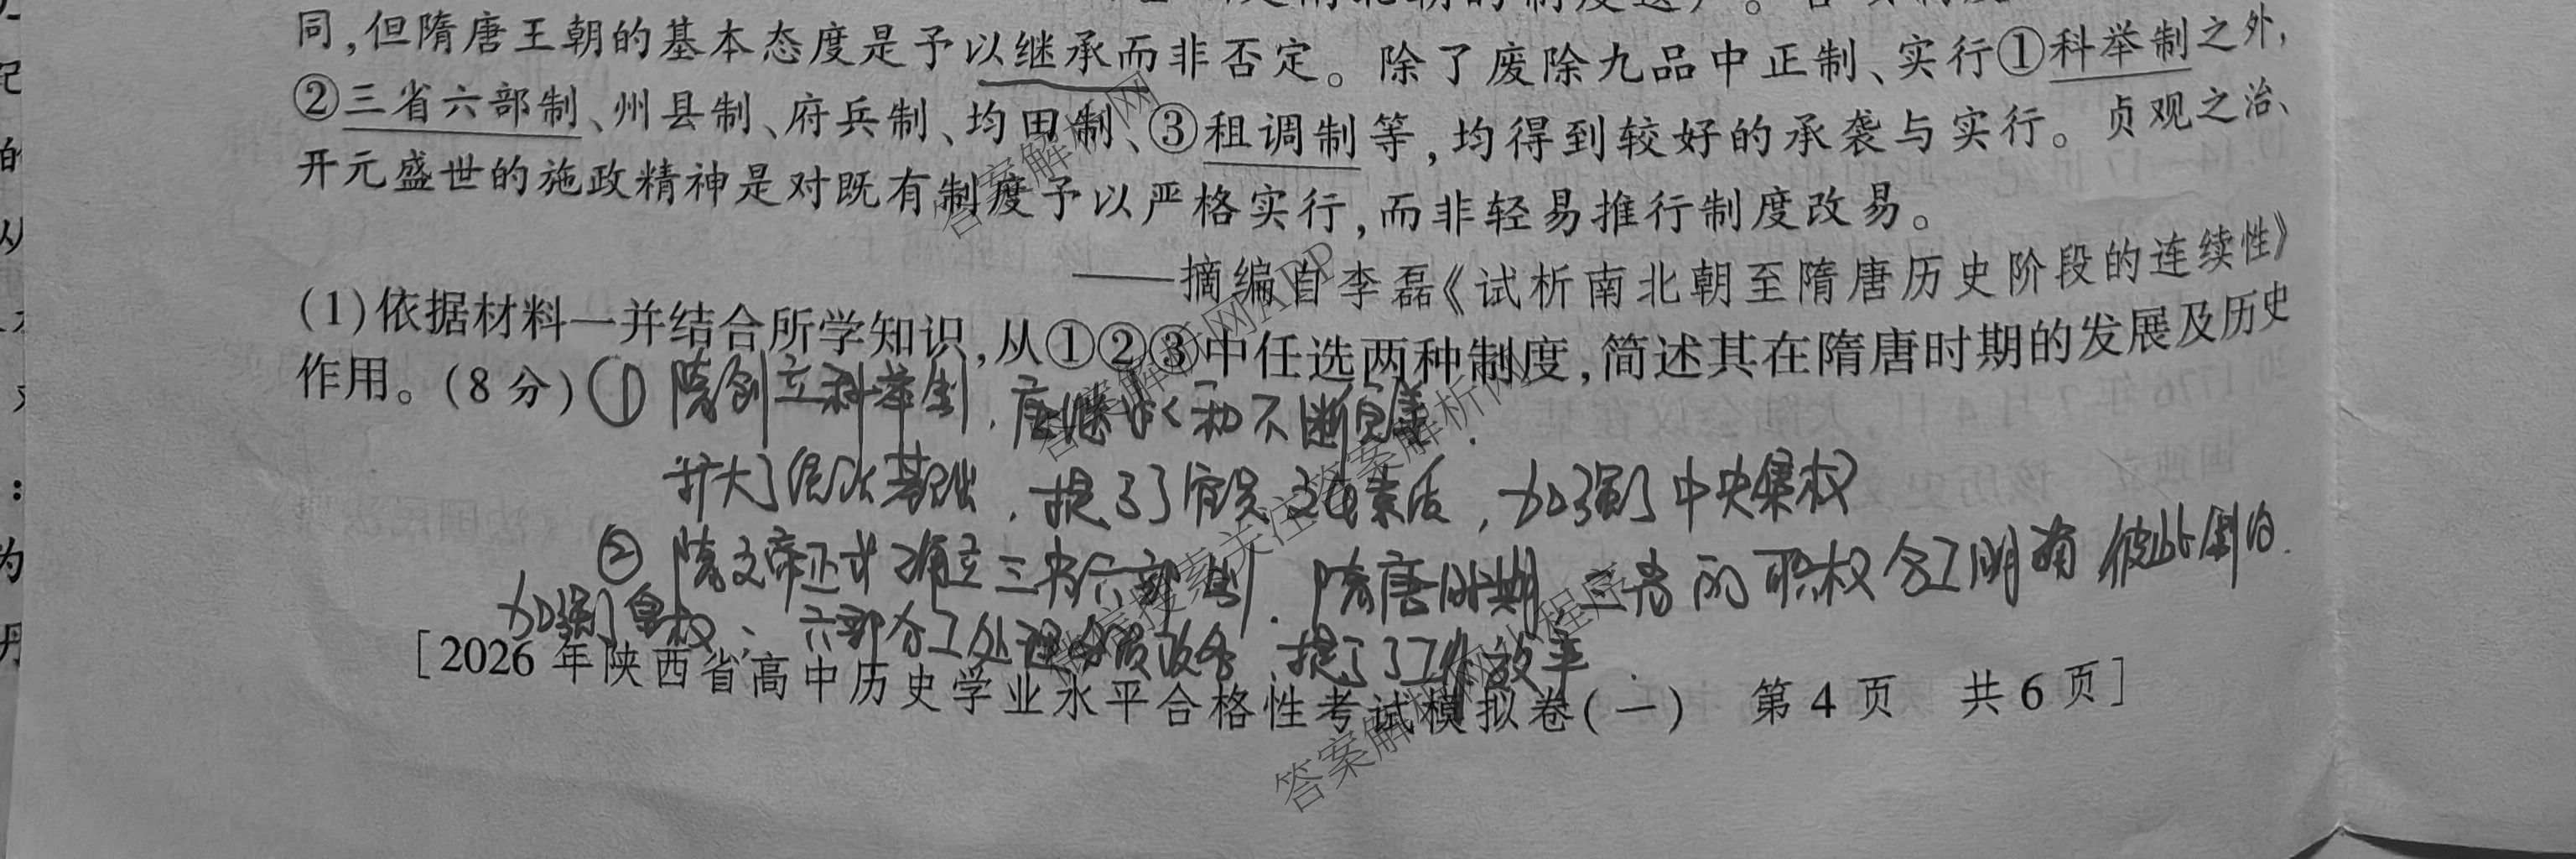 同,但隋唐王朝的基本态度是予以继承而非否定。除了废除九品中正制、实行①科举制之外,
②三省六部制、州县制、府兵制、均田制、③租调制等,均得到较好的承袭与实行。贞观之治、
开元盛世的施政精神是对既有制度予以严格实行,而非轻易推行制度改易。
——摘编自李磊《试析南北朝至隋唐历史阶段的连续性》
(1)依据材料一并结合所学知识,从①②③中任选两种制度,简述其在隋唐时期的发展及历史
作用。(8分)
① 隋创立科举制,唐继承和不断完善.
扩大了统治基础,提高了官员文化素质,加强了中央集权
② 隋文帝正式确立三省六部制.隋唐时期,三省的职权分工明确 彼此制约.
加强了皇权;六部分工处理 政务,提高了工作效率.
[2026年陕西省高中历史学业水平合格性考试模拟卷(一) 第4页 共6页]
答案解析网
答案解析网APP
微信搜索关注:答案解析网
微信搜索 小程序
答案解析网